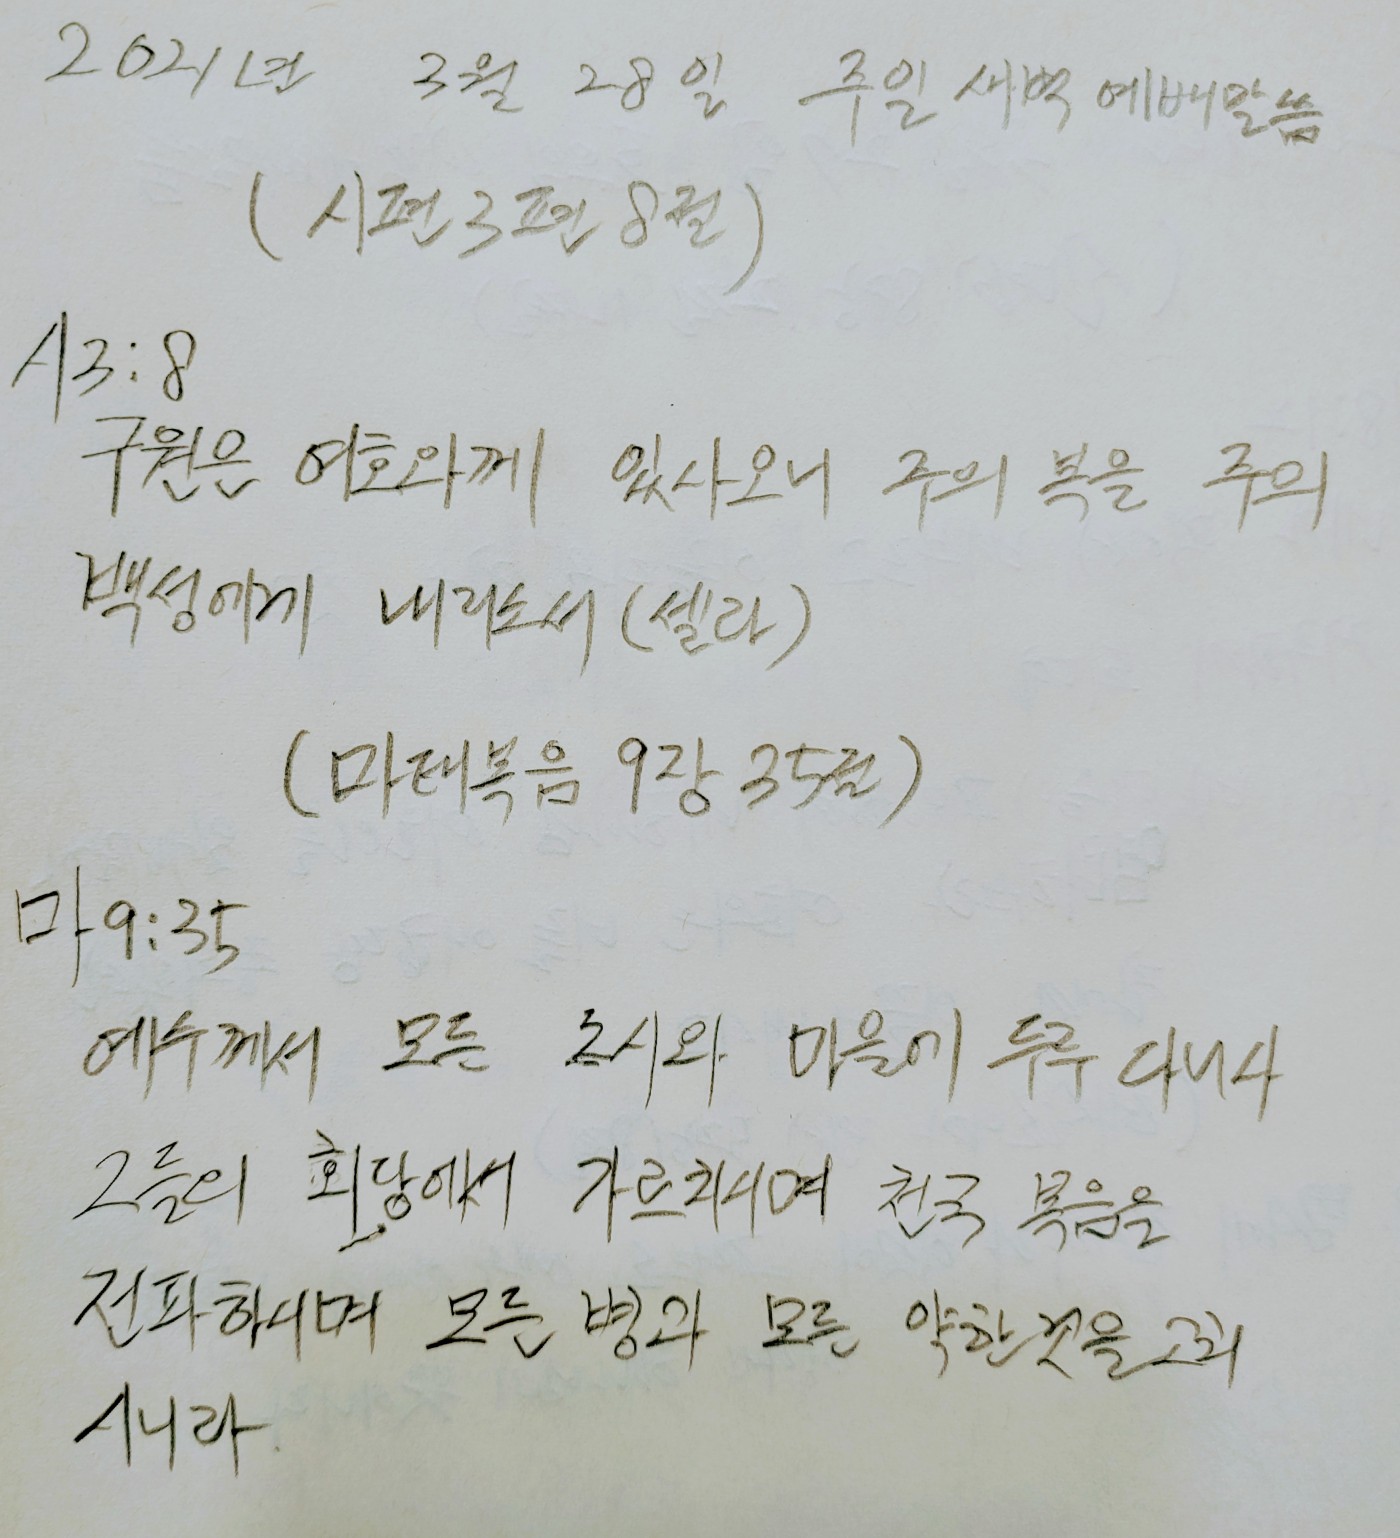 2021년 3월 28일 주일새벽예배말씀
(시편3편8절)
시3:8
구원은 여호와께 있사오니 주의 복을 주의
백성에게 내리소서(셀라)
(마태복음 9장 35절)
마9:35
예수께서 모든 도시와 마을에 두루 다니사
그들의 회당에서 가르치시며 천국 복음을
전파하시며 모든 병과 모든 약한것을 고치
시니라.